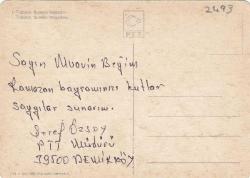 2493
PTT
Sayın Muavin Beğim
Ramazan bayramınızı kutlar
saygılar sunarım.
Özsoy
PTT Müdürü
39500 DEMİRKÖY